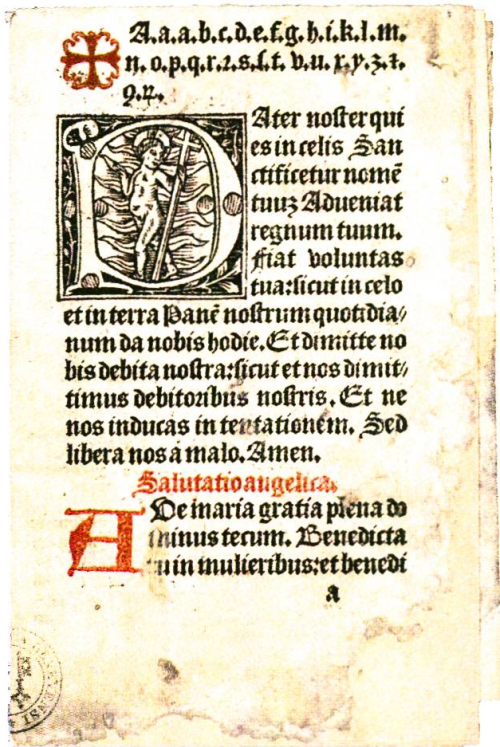 A.a.a.b.c.d.e.f.g.h.i.k.l.m.
n.o.p.q.r.ꝛ.s.ſ.t.v.u.x.y.z.⁊.
ꝯ.ꝝ.
PAter noſter qui
es in celis San
ctificetur nomē
tuuz Adueniat
regnum tuum.
fiat voluntas
tua: ſicut in celo
et in terra Panē noſtrum quotidia⸗
num da nobis hodie. Et dimitte no
bis debita noſtra: ſicut et nos dimit⸗
timus debitoribus noſtris. Et ne
nos inducas in tentationem. Sed
libera nos a malo. Amen.
Salutatio angelica.
AUe maria gratia plena do
minus tecum. Benedicta
tu in mulieribus: et benedi
a